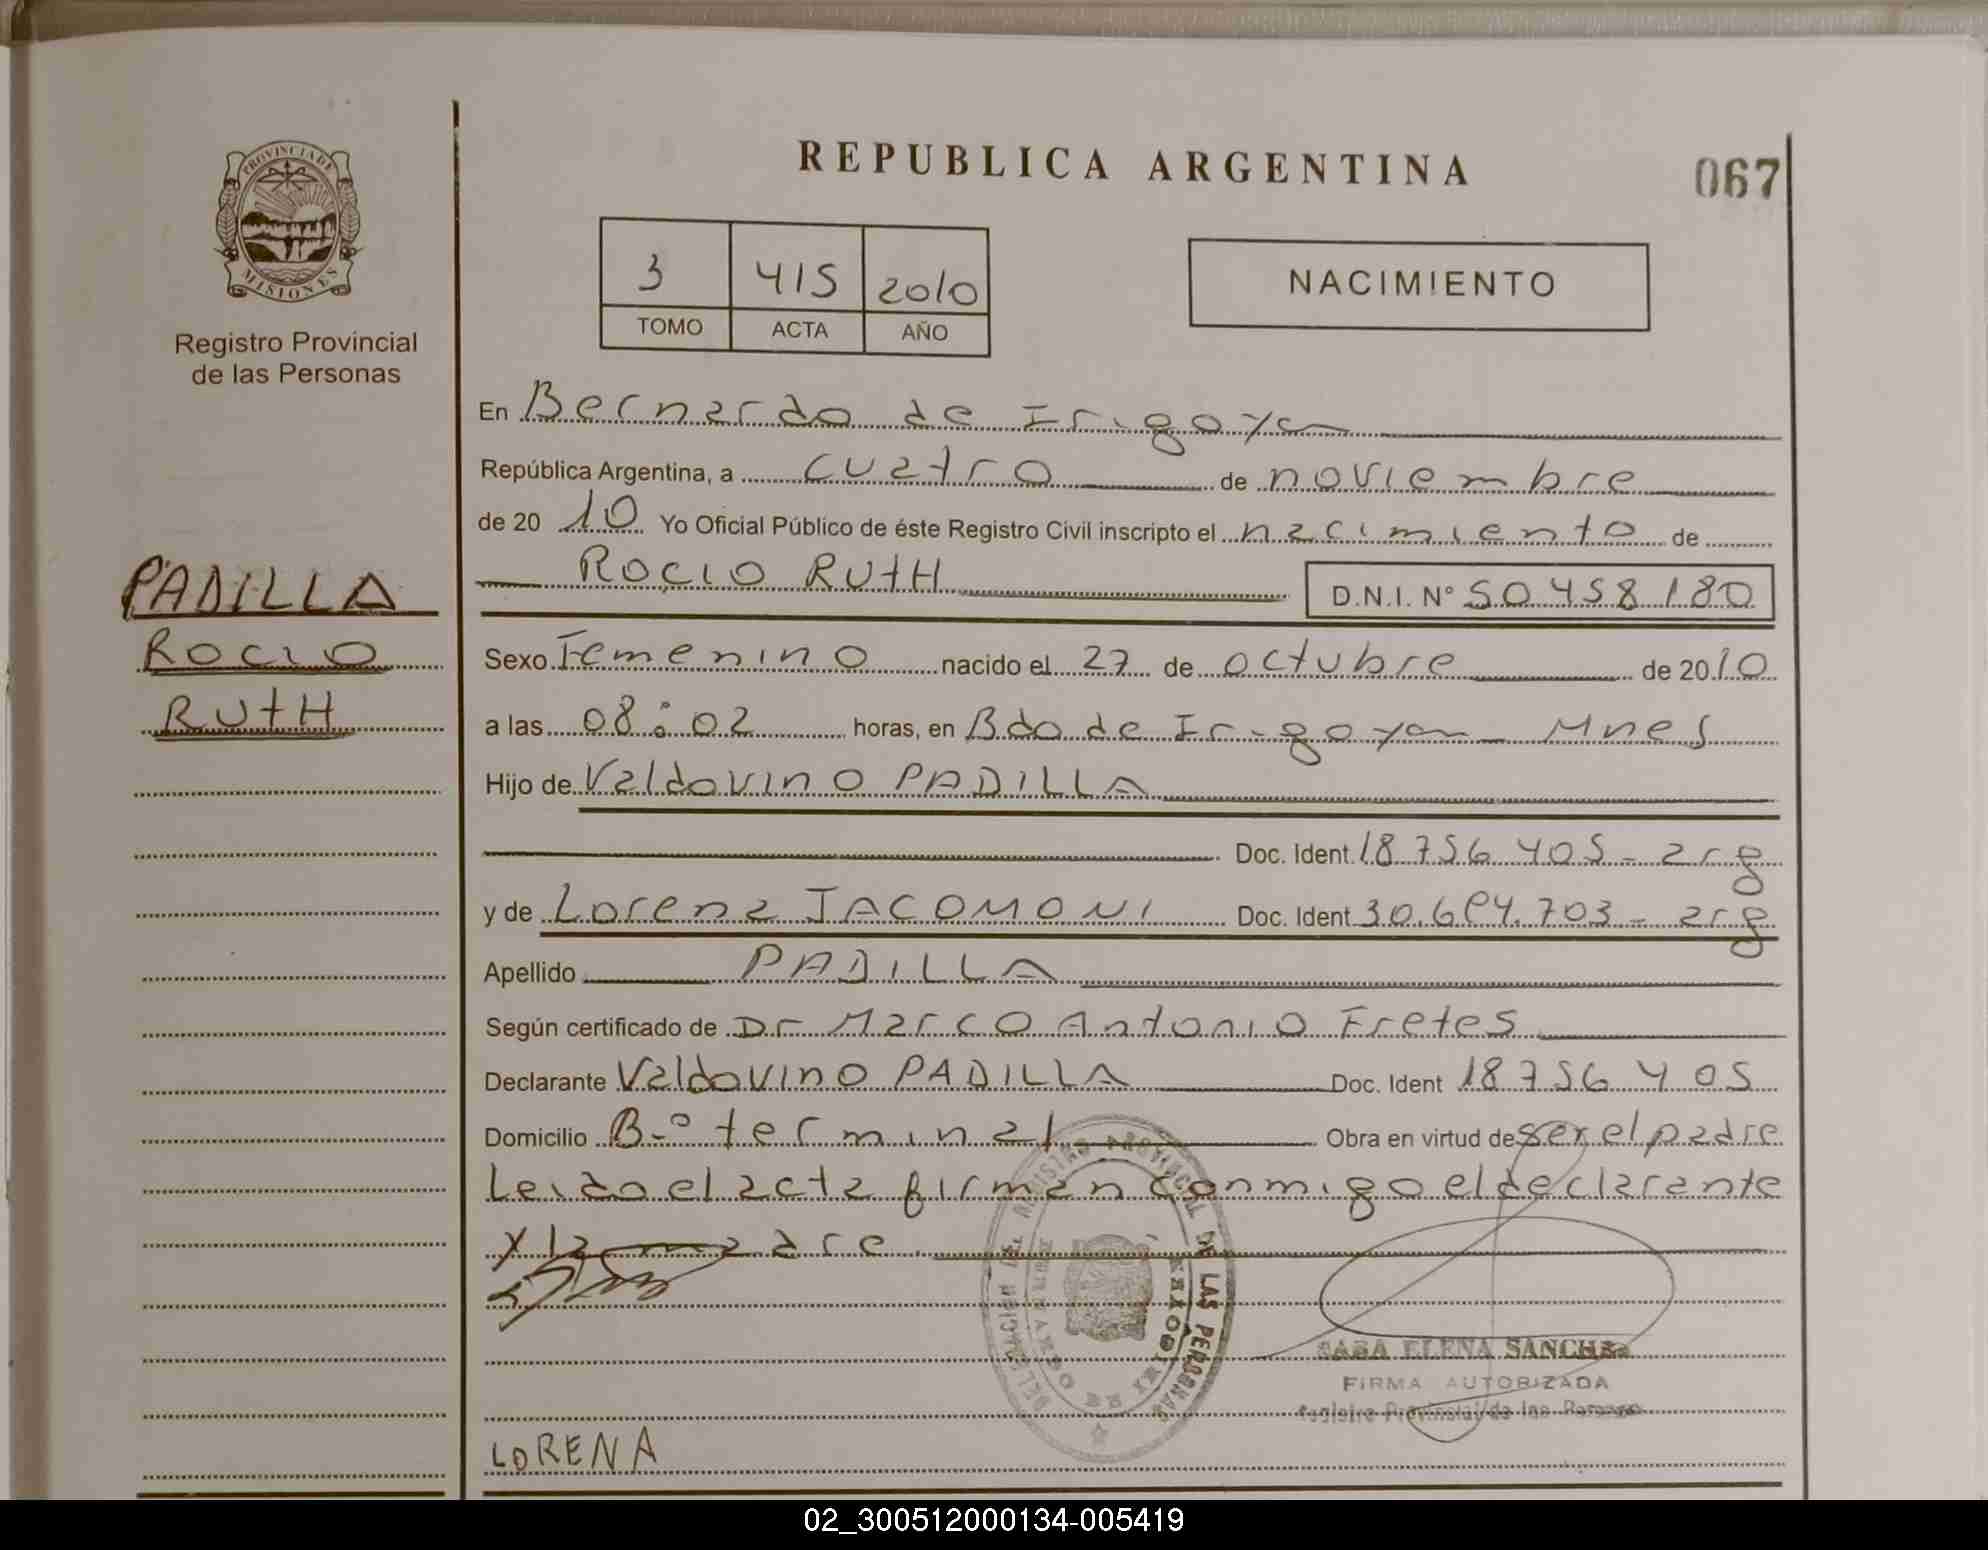 PROVINCIA DE
MISIONES
Registro Provincial
de las Personas
REPUBLICA ARGENTINA
067
3 415 2010
TOMO ACTA AÑO
NACIMIENTO
En Bernardo de Irigoyen
República Argentina, a cuatro de noviembre
de 20 10 Yo Oficial Público de éste Registro Civil inscripto el nacimiento de
ROCIO RUtH D.N.I. N° 50458180
PADILLA
ROCIO
RUtH
Sexo Femenino nacido el 27 de octubre de 2010
a las 08:02 horas, en Bdo de Irigoyen Mnes
Hijo de Valdovino PADILLA
Doc. Ident. 18756405 - arg
y de Lorena JACOMONI Doc. Ident 30.694.703 - arg
Apellido PADILLA
Según certificado de Dr Marco Antonio Fretes
Declarante Valdovino PADILLA Doc. Ident 18756405
Domicilio B.° terminal Obra en virtud de ser el padre
Leida el acta firman conmigo el declarante
y la madre.
DELEGACION DEL REGISTRO PROVINCIAL DE LAS PERSONAS
BERNARDO DE IRIGOYEN
SARA ELENA SANCHEZ
FIRMA AUTORIZADA
Registro Provincial de las Personas
LORENA
02_300512000134-005419